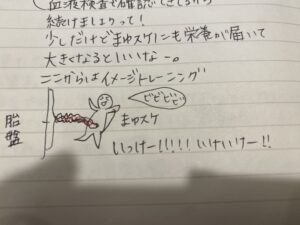 血液検査で確認できてるから
続けましょうって!
少しだけどまゆスケにも栄養が届いて
大きくなるといいなー。
ここからはイメージトレーニング
ビビビビ
胎盤
まゆスケ
いっけー!!!!! いけいけー!!